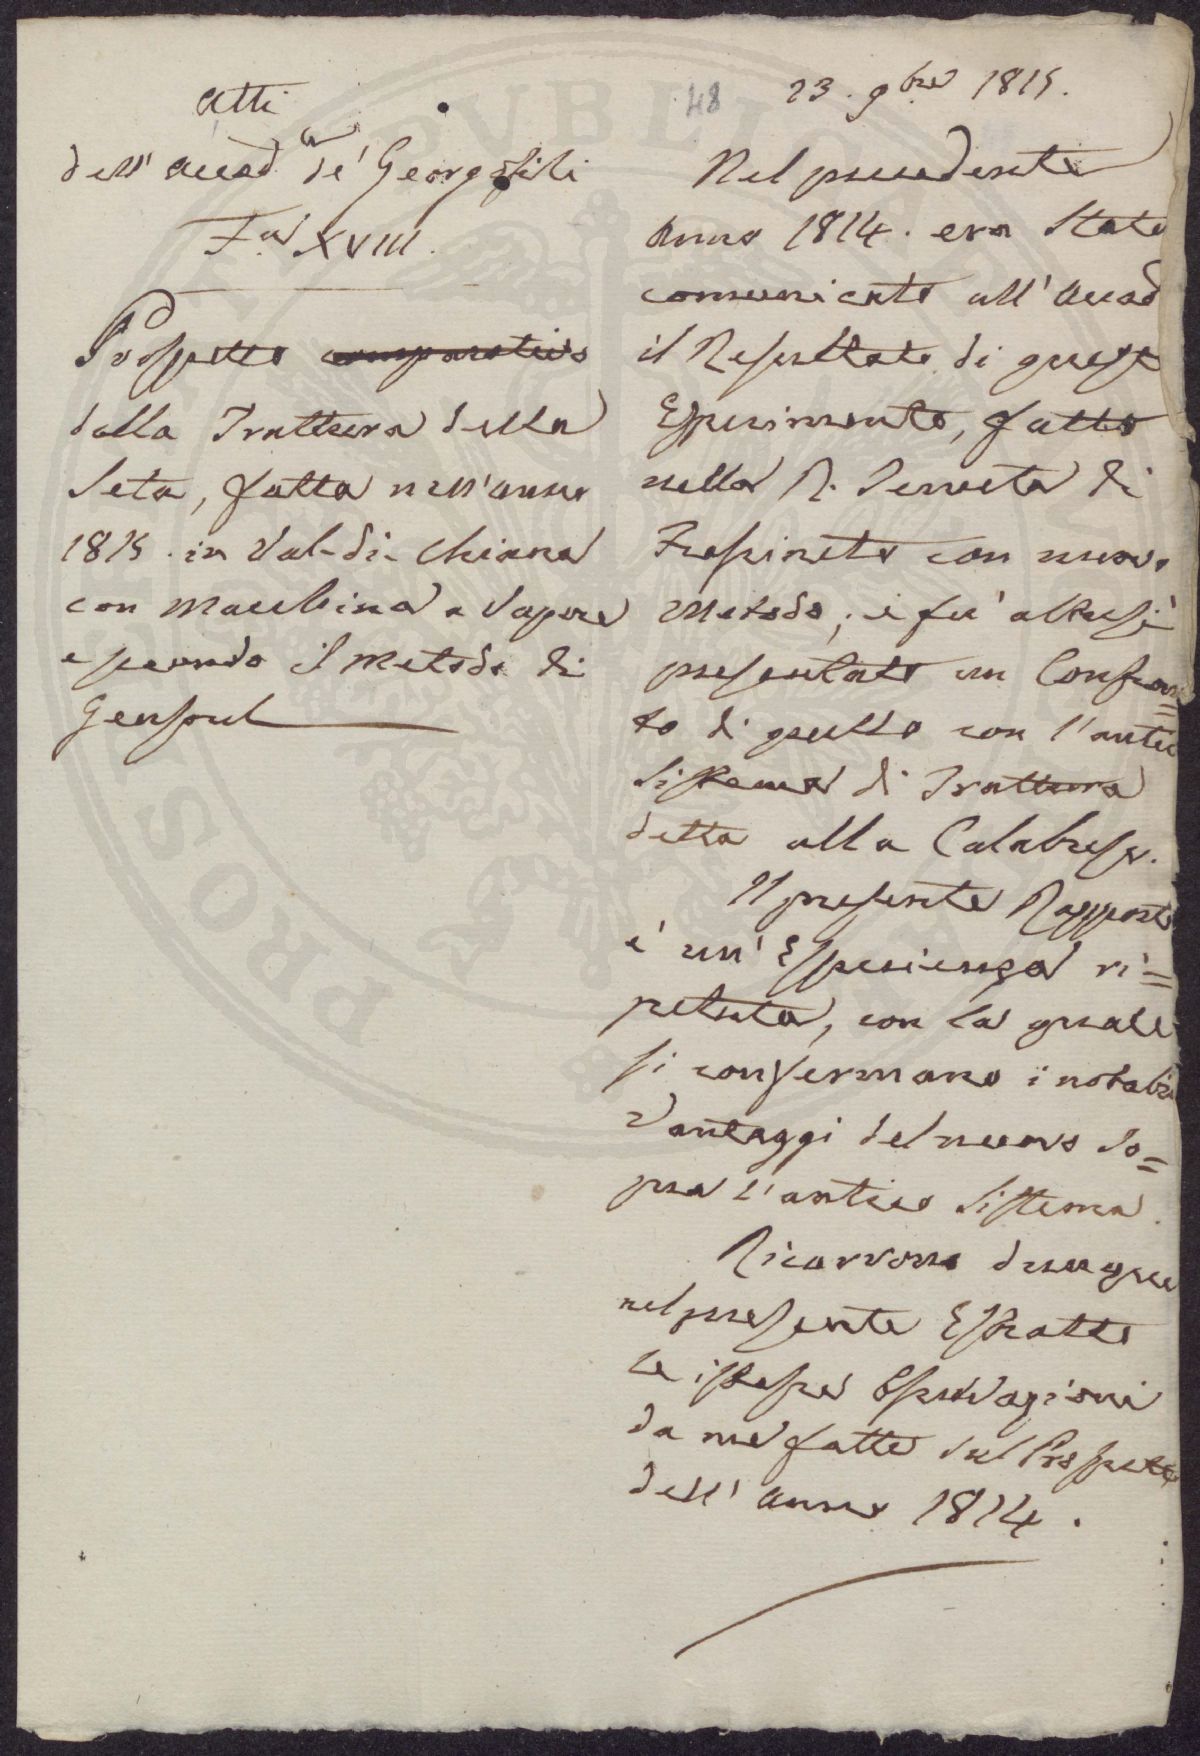 Atti
dell' Accad.a de' Georgofili
F.a XVIII.
Prospetto comparativo
della Trattura della
Seta, fatta nell'anno
1815. in Val-di-Chiana
con Macchina a Vapore
e secondo il Metodo di
Gensoul
48
23. 9bre 1815.
Nel precedente
Anno 1814. era stato
comunicato all' Accad.
il Resultato di questo
Esperimento, fatto
nella R. Tenuta di
Frassineto con nuovo
Metodo, e fu' altresì
presentato un Confron=
to di quello con l'antico
Sistema di Trattura
detta alla Calabrese.
Il presente Rapporto
e' un' Esperienza ri=
petuta, con la quale
si confermano i notabili
Vantaggi del nuovo So=
pra l'antico Sistema.
Ricorrono dunque
nel presente Estratto
le istesse Osservazioni
da me fatte sul Prospetto
dell' Anno 1814.
PVBLI
PROS